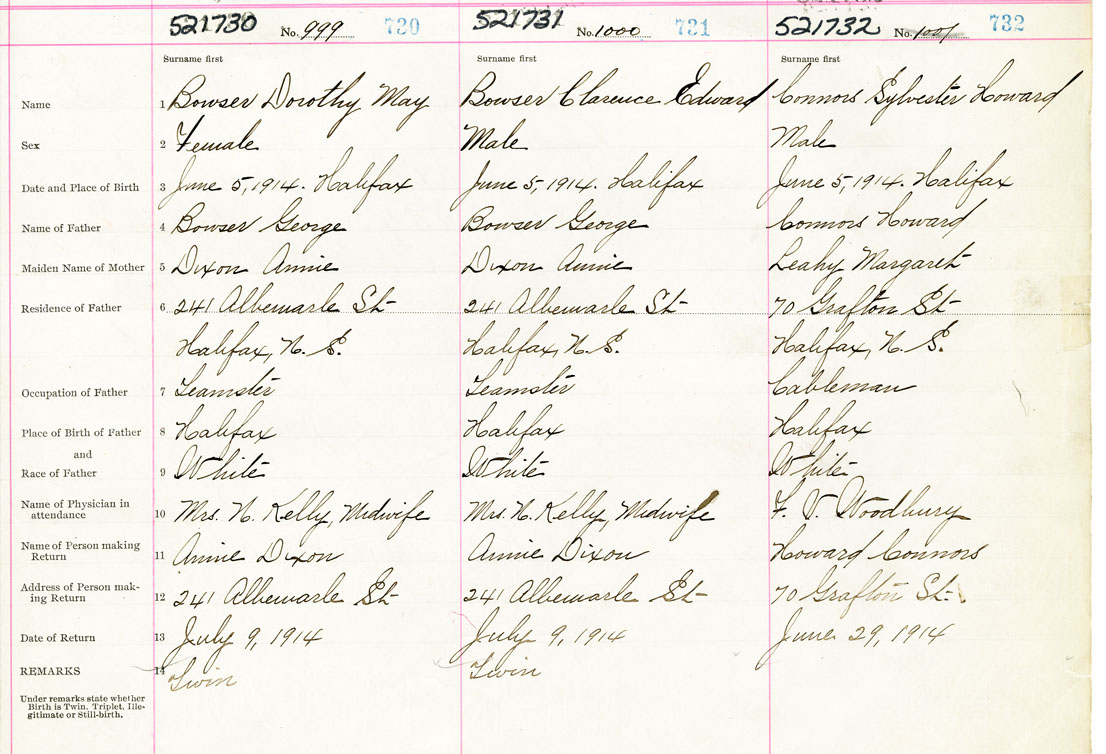 521730 No. 999 730 521731 No. 1000 731 521732 No. 1001 732
Surname first Surname first Surname first
Name 1 Bowser Dorothy May Bowser Clarence Edward Connors Sylvester Howard
Sex 2 Female Male Male
Date and Place of Birth 3 June 5, 1914. Halifax June 5, 1914. Halifax June 5, 1914. Halifax
Name of Father 4 Bowser George Bowser George Connors Howard
Maiden Name of Mother 5 Dixon Annie Dixon Annie Leahy Margaret
Residence of Father 6 241 Albemarle St 241 Albemarle St 70 Grafton St
Halifax, N. S. Halifax, N. S. Halifax, N. S.
Occupation of Father 7 Teamster Teamster Cableman
Place of Birth of Father 8 Halifax Halifax Halifax
and
Race of Father 9 White White White
Name of Physician in
attendance 10 Mrs. N. Kelly, Midwife Mrs. N. Kelly, Midwife F. V. Woodbury
Name of Person making
Return 11 Annie Dixon Annie Dixon Howard Connors
Address of Person mak-
ing Return 12 241 Albemarle St 241 Albemarle St 70 Grafton St.
Date of Return 13 July 9, 1914 July 9, 1914 June 29, 1914
REMARKS 14 Twin Twin
Under remarks state whether
Birth is Twin, Triplet, Ille-
gitimate or Still-birth.